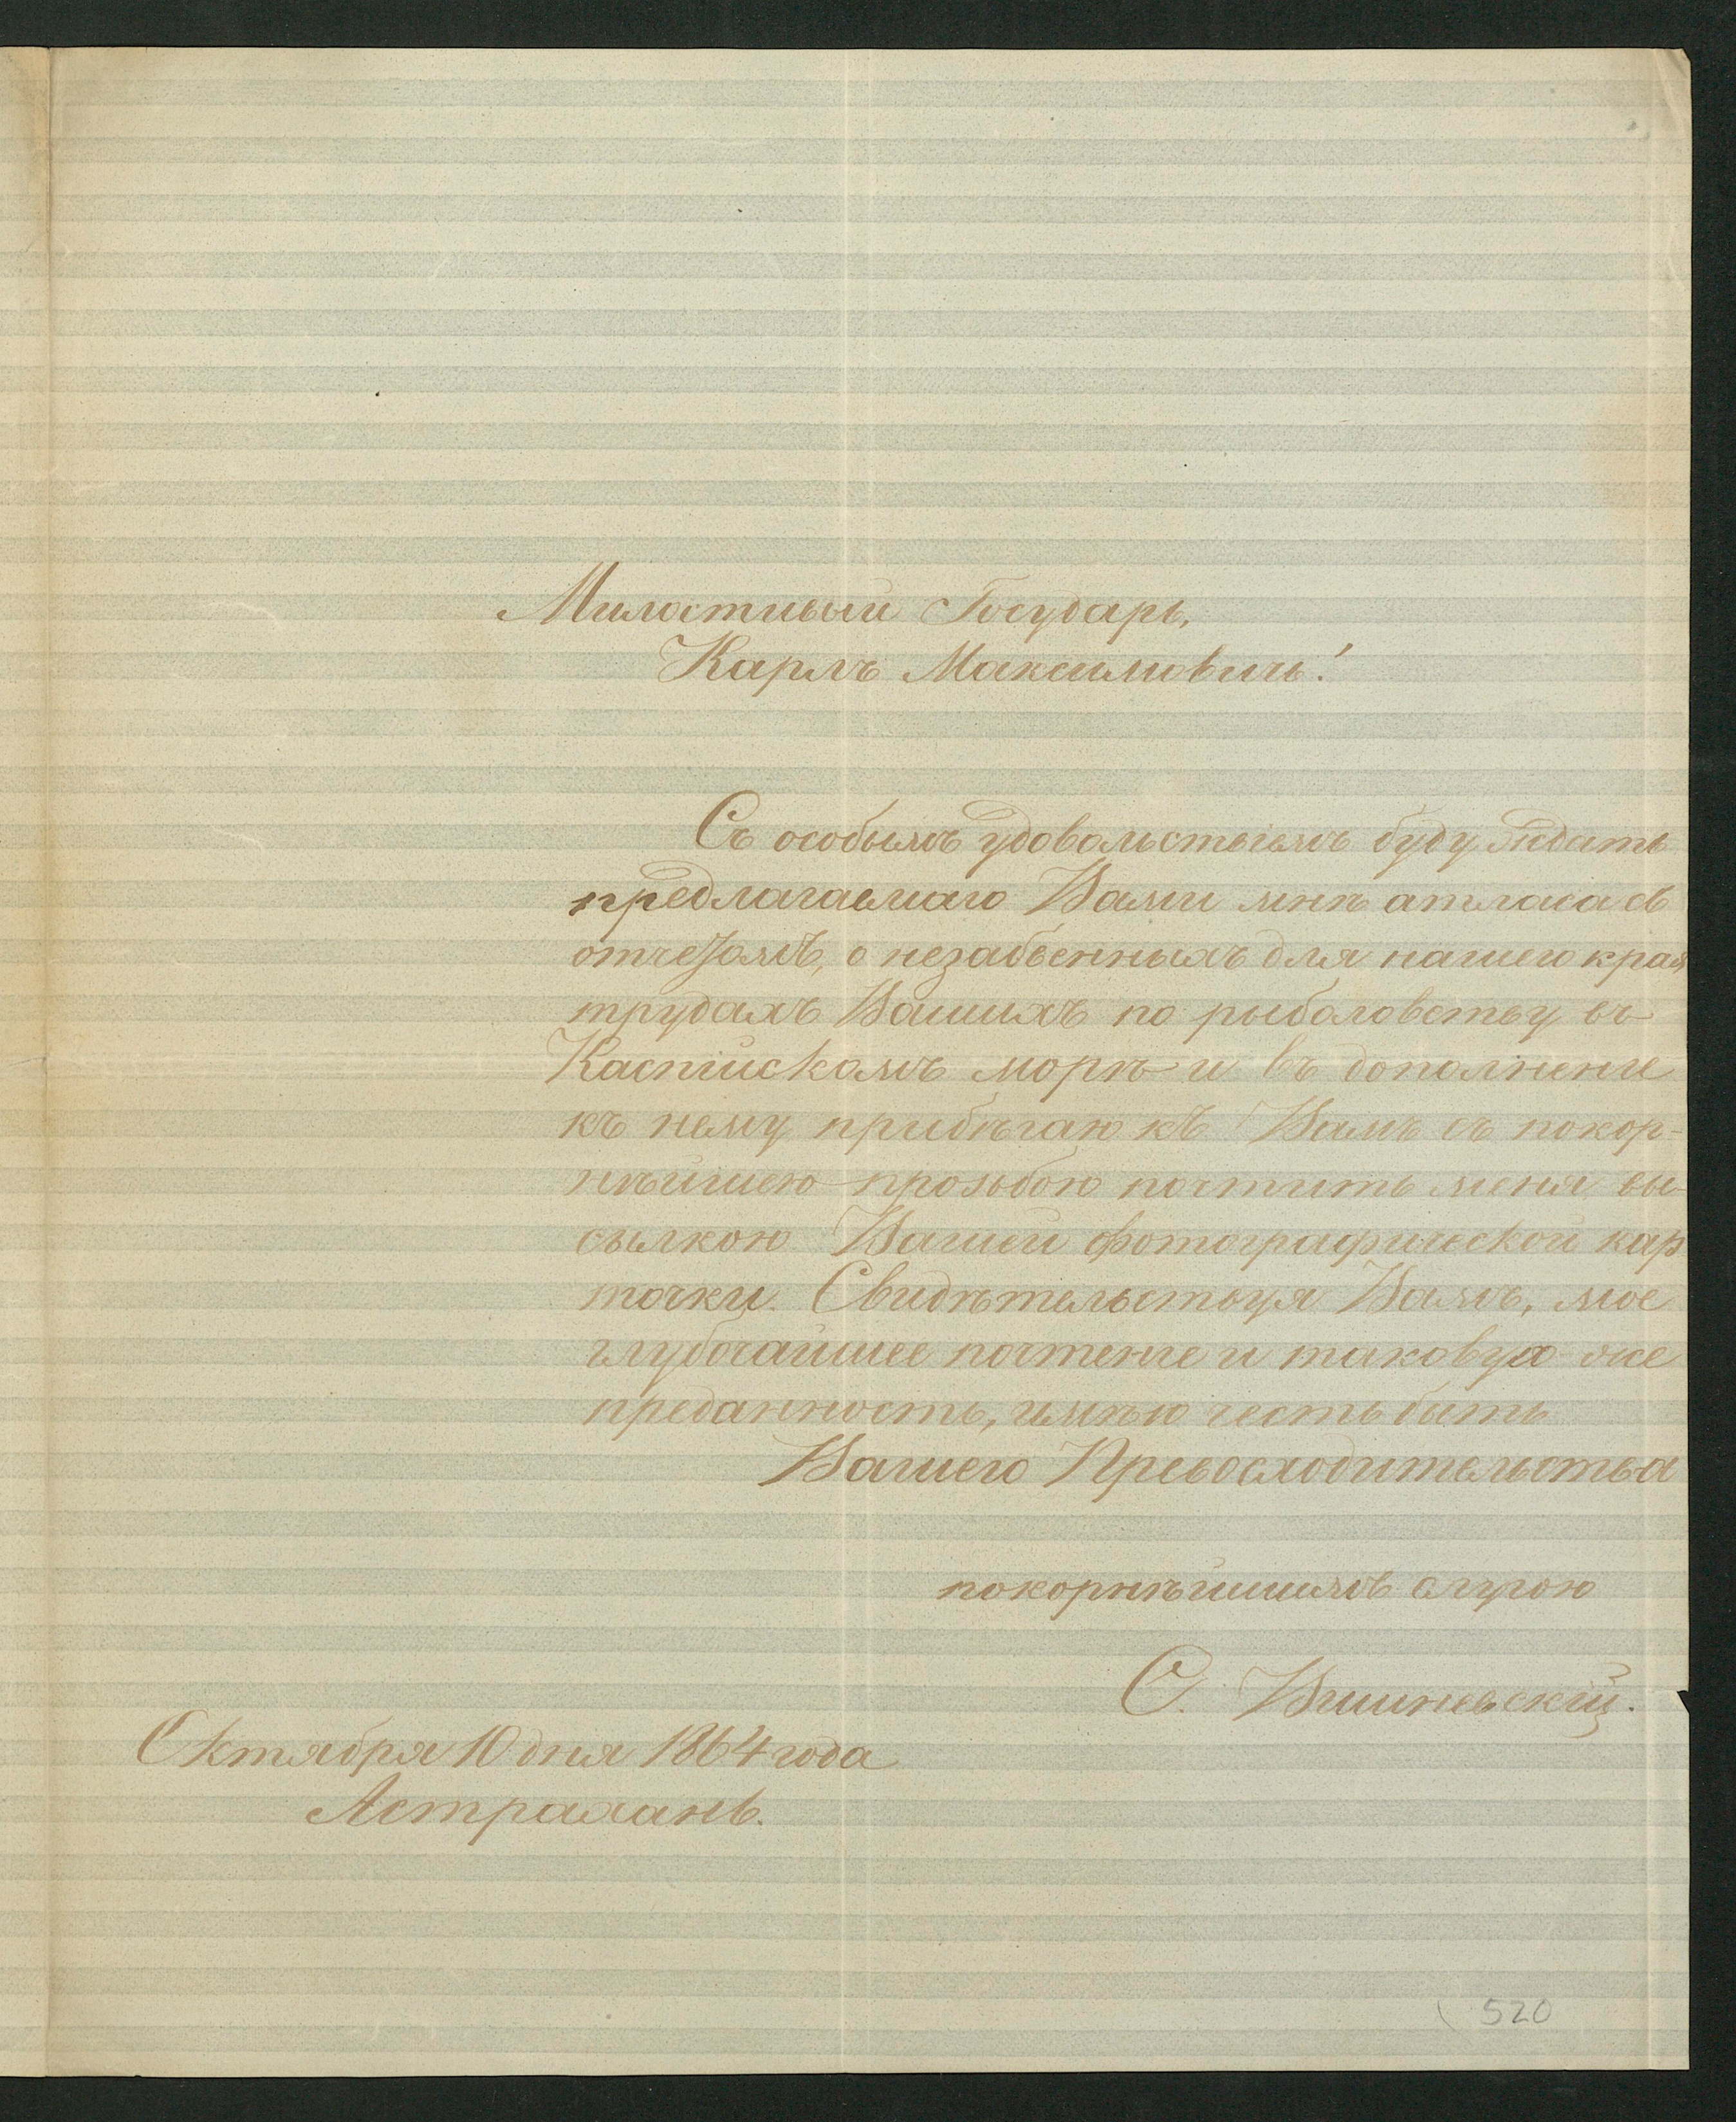 Милостивый Государь,
Карлъ Максимовичъ!
Съ особымъ удовольствіемъ буду ждать
предлагаемаго Вами мнѣ атласа съ
отчетомъ, о незабвенныхъ для нашего края
трудахъ Вашихъ по рыболовству въ
Каспійскомъ морѣ и въ дополненіе
къ нему прибѣгаю къ Вамъ съ покор-
нѣйшею прозьбою почтить меня вы-
сылкою Вашей фотографической кар
точки. Свидѣтельствуя Вамъ, мое
глубочайшее почтеніе и таковую же
преданность, имѣю честь быть
Вашего Превосходительства
покорнѣйшимъ слугою
С. Вишневскій.
Октября 10 дня 1864 года
Астрахань.
520